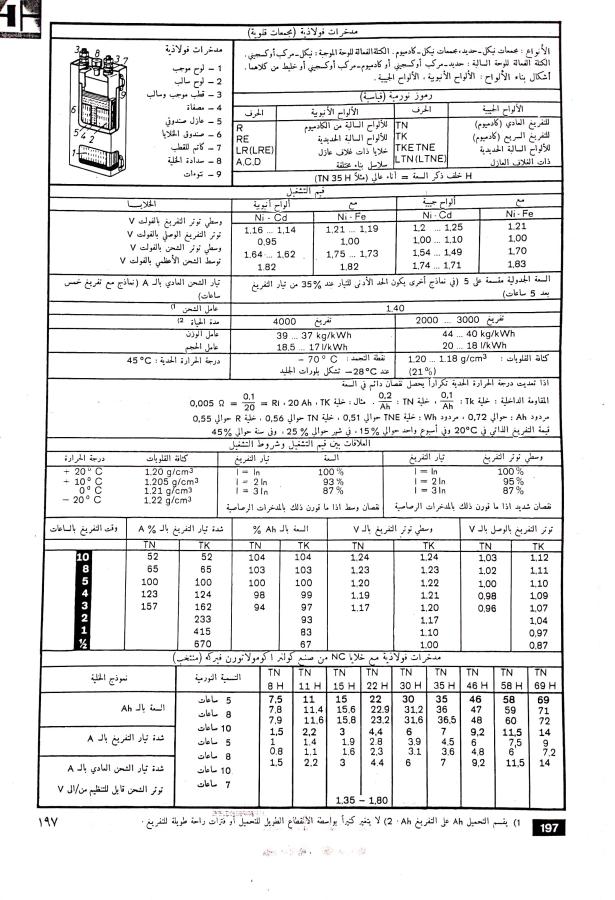 مدخرات فولاذية (مجمعات قلوية)
الأنواع: مجمعات نيكل-حديد، مجمعات نيكل-كادميوم. الكتلة الفعالة للوحة الموجبة: نيكل-مركب أوكسجيني.
الكتلة الفعالة للوحة السالبة: حديد-مركب أوكسجيني أو كادميوم-مركب أوكسجيني أو خليط من كلاهما.
أشكال بناء الألواح: الألواح الأنبوبية. الألواح الجيبية.
مدخرات فولاذية
1 - لوح موجب
2 - لوح سالب
3 - قطب موجب وسالب
4 - مصفاة
5 - عازل صندوقي
6 - صندوق الخلايا
7 - كاتم للقطب
8 - سدادة الخلية
9 - نتوءات
رموز نورمية (قياسية)
الألواح الجيبية الحرف الألواح الأنبوبية الحرف
للتفريغ العادي (كادميوم) TN للألواح السالبة من الكادميوم R
للتفريغ السريع (كادميوم) TK للألواح السالبة الحديدية RE
للألواح السالبة الحديدية TKE TNE خلايا ذات غلاف عازل LR(LRE)
ذات الغلاف العازل LTN (LTNE) سلاسل بناء مختلفة A,C,D
H خلف ذكر السعة = أناء عالي (مثلاً TN 35 H)
قيم التشغيل
الخلايا ألواح أنبوبية مع ألواح جيبية مع
Ni - Cd Ni - Fe Ni - Cd Ni - Fe
وسطي توتر التفريغ بالفولت V 1,16 ... 1,14 1,21 ... 1,19 1,2 ... 1,25 1,21
توتر التفريغ الوصلي بالفولت V 0,95 1,00 1,00 ... 1,10 1,00
وسطي توتر الشحن بالفولت V 1.64 ... 1,62 1,75 ... 1,73 1,54 ... 1,49 1,70
توسط الشحن الأعظمي بالفولت V 1.82 1,82 1,74 ... 1,71 1,83
تيار الشحن العادي بالـ A (نماذج مع تفريغ خمس ساعات) السعة الجدولية مقسمة على 5 (في نماذج أخرى يكون الحد الأدنى للتيار عند 35% من تيار التفريغ بعد 5 ساعات)
عامل الشحن 1) 1,40
مدة الحياة 2) 4000 تفريغ 2000 ... 3000 تفريغ
عامل الوزن 39 ... 37 kg/kWh 44 ... 40 kg/kWh
عامل الحجم 18.5 ... 17 l/kWh 20 ... 18 l/kWh
درجة الحرارة الحدية: 45°C نقطة التجمد: - 70° C كثافة القلويات: 1,20 ... 1.18 g/cm³
عند -28°C تشكل بلورات الجليد (21%)
اذا تعديت درجة الحرارة الحدية تكراراً يحصل نقصان دائم في السعة
المقاومة الداخلية: خلية Tk: 0,1/Ah، خلية TN: 0.2/Ah. مثال: خلية Ri , 20 Ah , TK = 0,1/20 = 0,005 Ω
مردود Ah: حوالي 0,72، مردود Wh: خلية TNE حوالي 0,51، خلية TN حوالي 0,56، خلية R حوالي 0,55
قيمة التفريغ الذاتي في 20°C وفي أسبوع واحد حوالي 15%، في شهر حوالي 25%، وفي سنة حوالي 45%
العلاقات بين قيم التشغيل وشروط التشغيل
درجة الحرارة كثافة القلويات تيار التفريغ السعة تيار التفريغ وسطي توتر التفريغ
+ 20° C 1.20 g/cm³ I = In 100% I = In 100%
+ 10° C 1.205 g/cm³ I = 2 In 93% I = 2 In 95%
0° C 1.21 g/cm³ I = 3 In 87% I = 3 In 87%
- 20° C 1.22 g/cm³
نقصان وسط اذا ما قورن ذلك بالمدخرات الرصاصية نقصان شديد اذا ما قورن ذلك بالمدخرات الرصاصية
وقت التفريغ بالساعات شدة تيار التفريغ بالـ A % السعة بالـ Ah % وسطي توتر التفريغ بالـ V توتر التفريغ بالوصل بالـ V
TN TK TN TK TN TK TN TK
10 52 52 104 104 1,24 1,24 1,03 1,12
8 65 65 103 103 1,23 1,23 1,02 1,11
5 100 100 100 100 1,20 1,22 1,00 1,10
4 123 124 98 99 1,19 1,21 0,98 1,09
3 157 162 94 97 1,17 1,20 0,96 1,07
2 233 93 1,17 1,04
1 415 83 1,10 0,97
½ 670 67 1,00 0,87
نموذج الخلية التسمية النورمية TN 8 H TN 11 H TN 15 H TN 22 H TN 30 H TN 35 H TN 46 H TN 58 H TN 69 H
السعة بالـ Ah 5 ساعات 7,5 11 15 22 30 35 46 58 69
8 ساعات 7,8 11.4 15.6 22.9 31,2 36 47 59 71
10 ساعات 7,9 11,6 15,8 23.2 31,6 36,5 48 60 72
شدة تيار التفريغ بالـ A 5 ساعات 1,5 2,2 3 4,4 6 7 9,2 11,5 14
8 ساعات 1 1.4 1.9 2.8 3,9 4.5 6 7,5 9
10 ساعات 0.8 1.1 1.6 2,3 3.1 3.6 4,8 6 7.2
شدة تيار الشحن العادي بالـ A 7 ساعات 1.5 2,2 3 4.4 6 7 9,2 11,5 14
توتر الشحن قابل للتنظيم من/الى V 1.35 - 1,80
1) يقسم التحميل Ah على التفريغ Ah. 2) لا يتغير كثيراً بواسطة الانقطاع الطويل للتحميل أو فترات راحة طويلة للتفريغ.
١٩٧
197